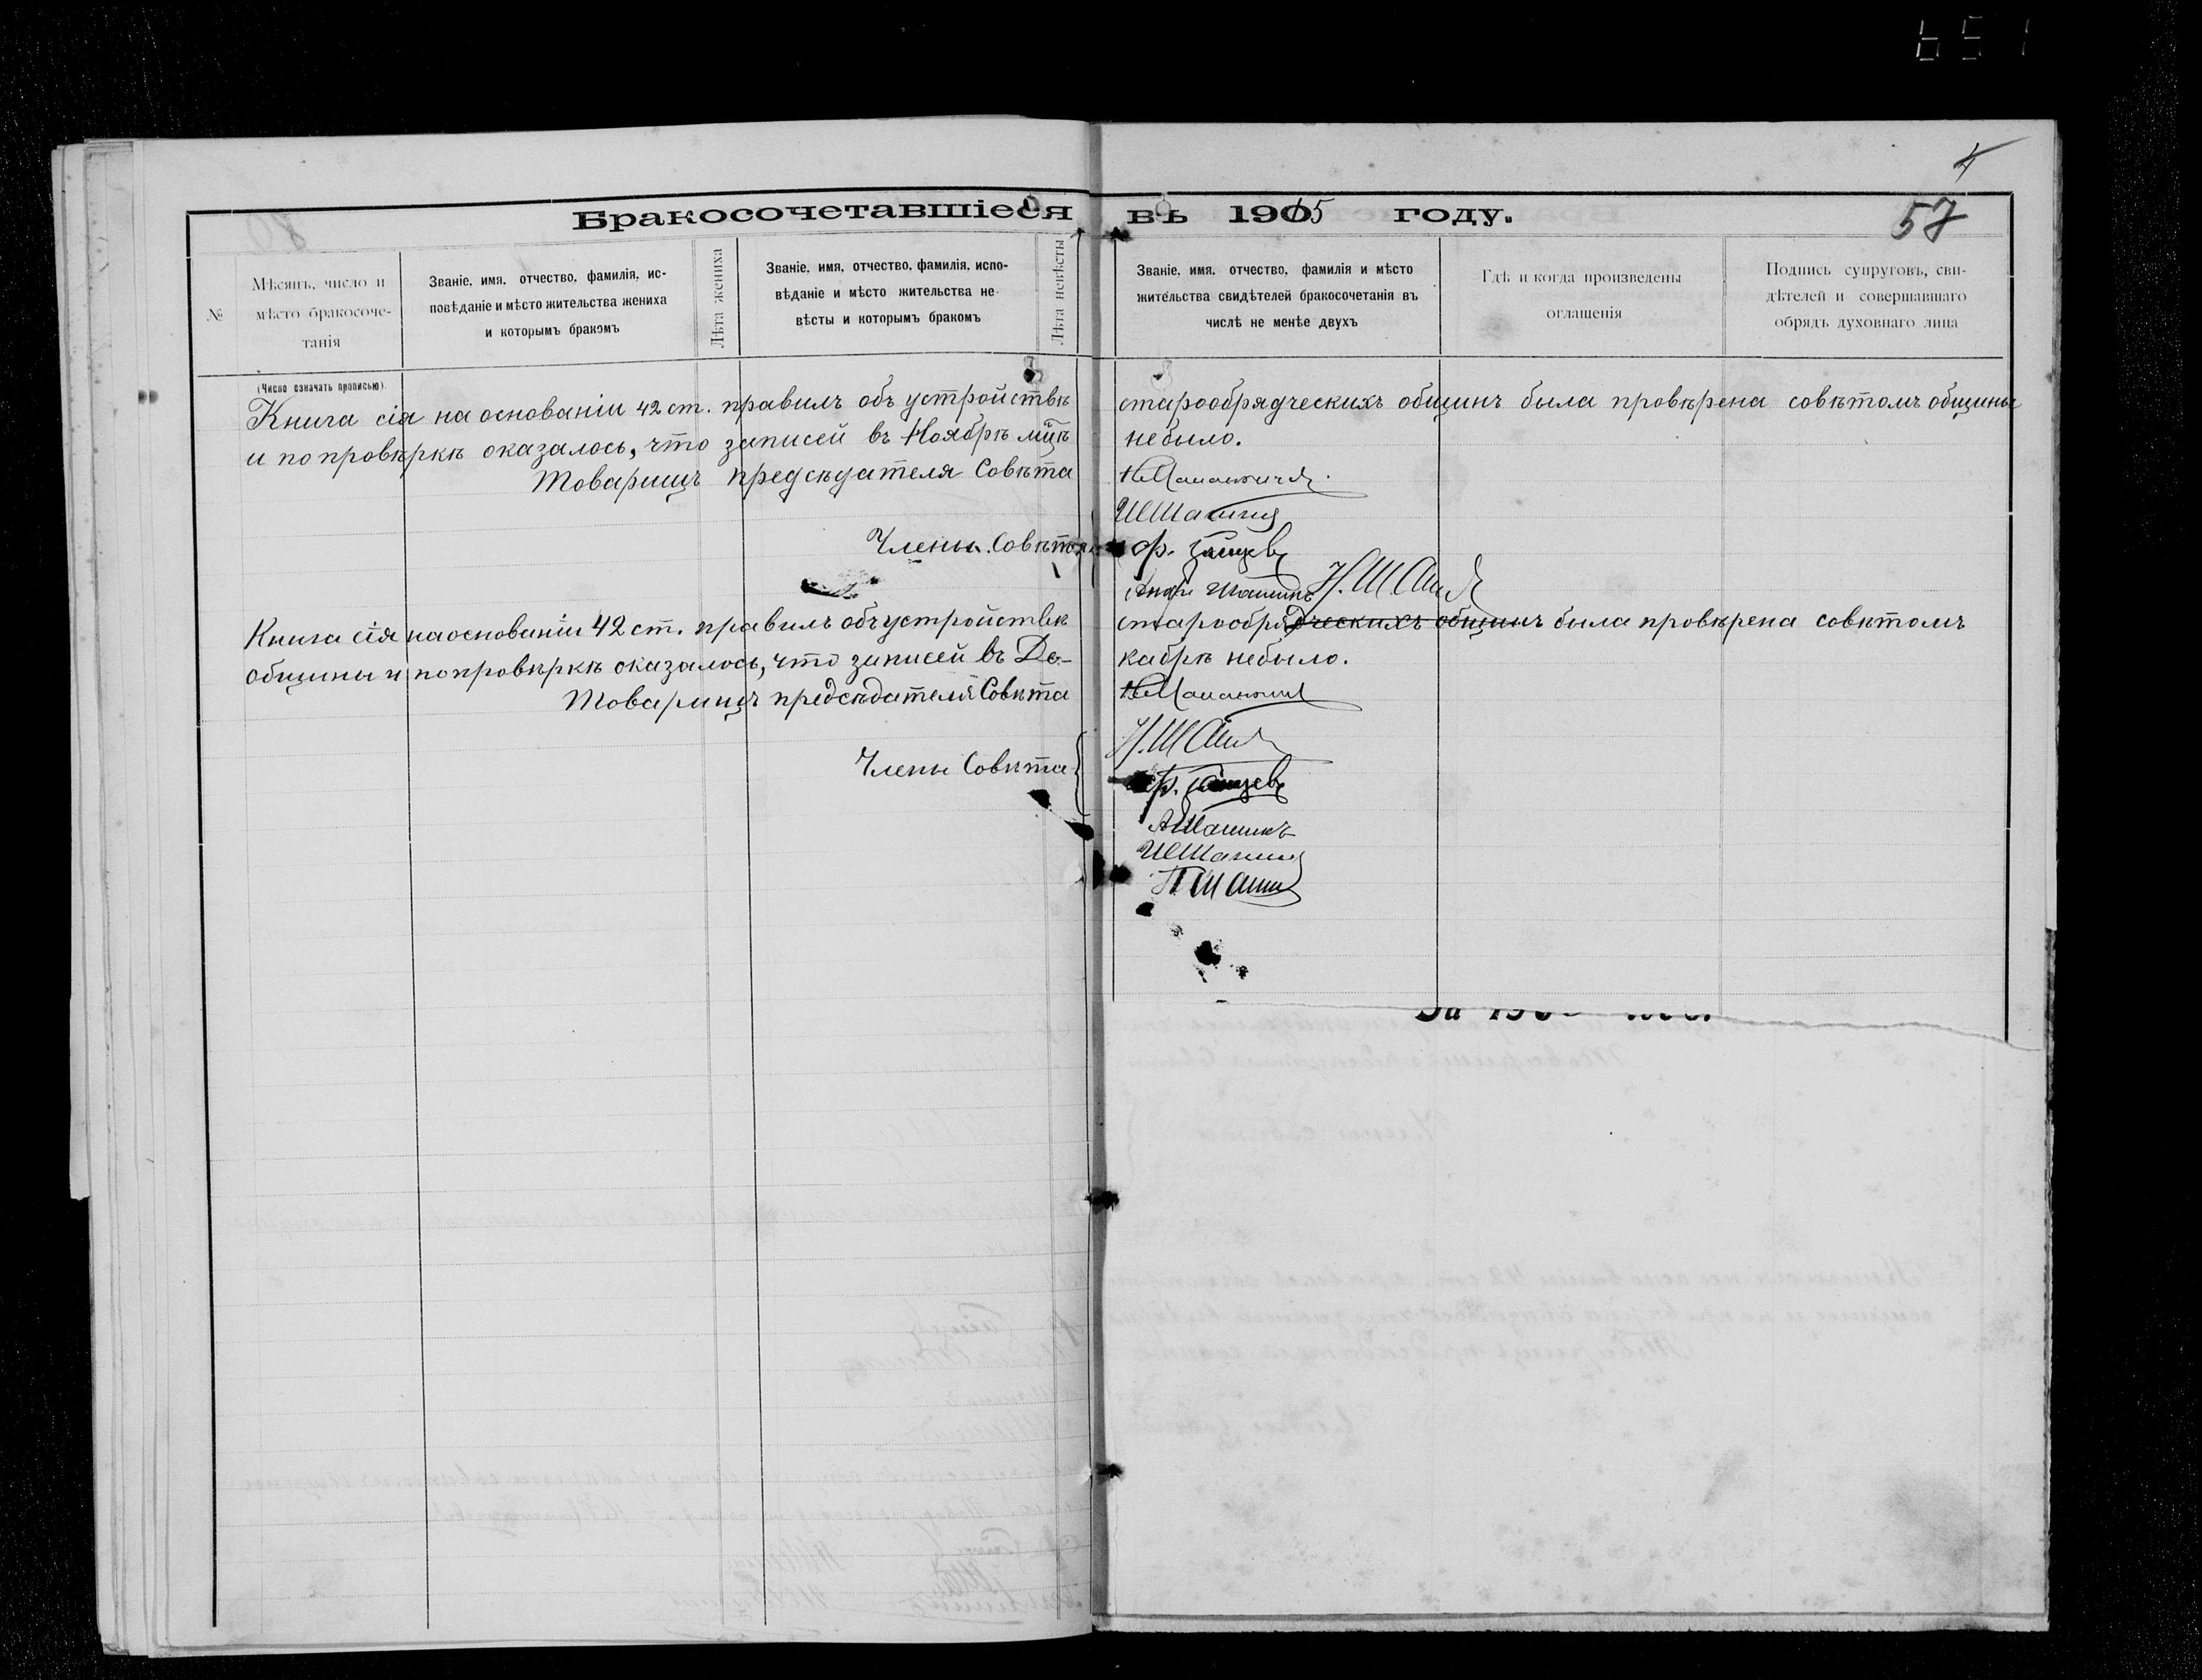 651
4
57
Бракосочетавшіеся въ 1915 году.
№
Мѣсяцъ, число и мѣсто бракосоче-
танія
(Число означать прописью).
Званіе, имя, отчество, фамилія, ис-
повѣданіе и мѣсто жительства жениха
и которымъ бракомъ
Лѣта жениха
Званіе, имя, отчество, фамилія, испо-
вѣданіе и мѣсто жительства не-
вѣсты и которымъ бракомъ
Лѣта невѣсты
Званіе, имя, отчество, фамилія и мѣсто
жительства свидѣтелей бракосочетанія въ
числѣ не менѣе двухъ
Гдѣ и когда произведены
оглашенія
Подпись супруговъ, сви-
дѣтелей и совершавшаго
обрядъ духовнаго лица
Книга сія на основаніи 42 ст. правилъ объ устройствѣ старообрядческихъ общинъ была провѣрена совѣтомъ общины
и по провѣркѣ оказалось, что записей въ Ноябрѣ м-цѣ небыло.
Товарищъ предсѣдателя Совѣта
И Шашинъ
Члены Совѣта
Ф. Зайцевъ
Андр. Шашинъ Н. Шашинъ
Книга сія на основаніи 42 ст. правилъ объ устройствѣ старообрядческихъ общинъ была провѣрена совѣтомъ
общины и по провѣркѣ оказалось, что записей въ Де-
кабрѣ небыло.
Товарищъ предсѣдателя Совѣта
Н. Шашинъ
Члены Совѣта
Ф. Зайцевъ
А Шашинъ
И Шашинъ
П Шашинъ